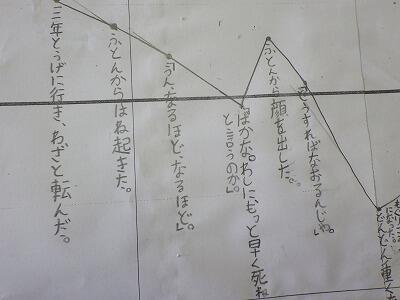 どんどん重くな
「どうすればなおるんじゃ。」
ふとんから顔を出した。
「ばかな。わしにもっと早く死ね
と言うのか。」
「うん、なるほど、なるほど。」
ふとんからはね起きた。
三年とうげに行き、わざと転んだ。